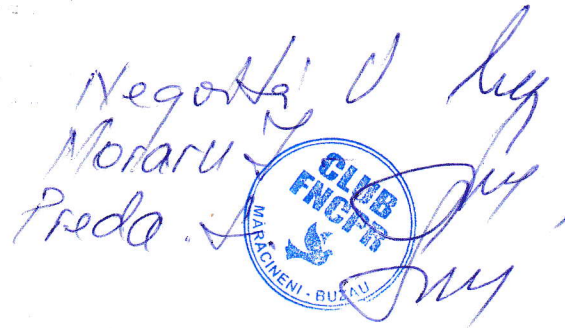 Negoiță V
Moraru I
Preda S.
CLUB
FNCFR
MARACINENI - BUZAU